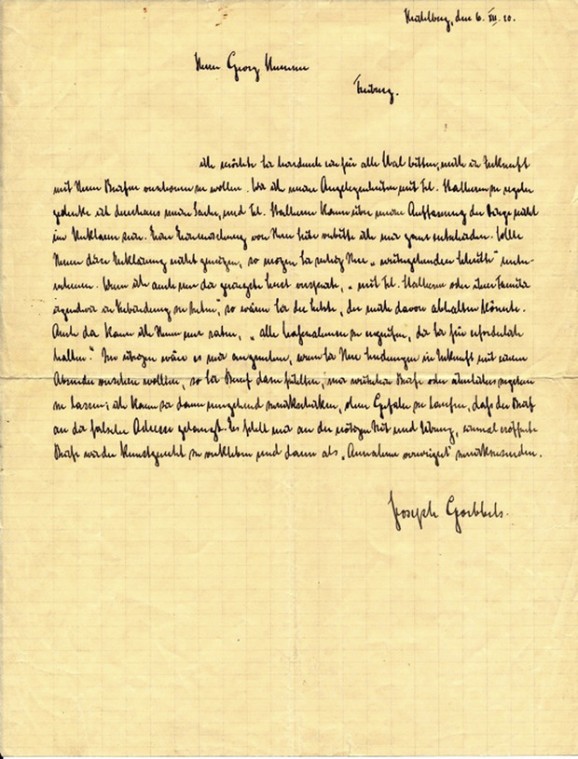 den 6. XII. 20.
Herrn Georg
Freiburg.
ich möchte Sie hierdurch ein für alle Mal bitten, mich in Zukunft
mit Ihren Briefen verschonen zu wollen. Wie ich meine Angelegenheiten mit Frl. Stalherm zu regeln
gedenke ist durchaus meine Sache, und Frl. Stalherm kann über meine Auffassung der Dinge nicht
im Unklaren sein. Jede Einmischung von Ihrer Seite verbitte ich mir ganz entschieden. Sollte
Ihnen diese Erklärung nicht genügen, so mögen Sie ruhig Ihre „weitgehenden Schritte" unter-
nehmen. Wenn ich auch nur den geringsten „mit Frl. Stalherm oder ihrer Familie
irgendwie in Verbindung zu stehen", so wären Sie der Letzte, der mich davon abhalten könnte.
Auch da kann ich Ihnen nur raten, „alle Maßnahmen zu ergreifen, die Sie für erforderlich
halten." Im übrigen wäre es mir angenehm, wenn Sie Ihre Sendungen in Zukunft mit einem
Absender versehen wollten, so Sie Beruf dazu fühlten, mir weiterhin Briefe oder ähnliches zugehen
zu lassen; ich kann sie dann umgehend zurückschicken, ohne Gefahr zu laufen, daß der Brief
an die falsche Adresse gelangt. Es fehlt mir an der nötigen Zeit und Übung, einmal eröffnete
Briefe wieder kunstgerecht zu verkleben und dann als „Annahme verweigert" zurückzusenden.
Joseph Goebbels.